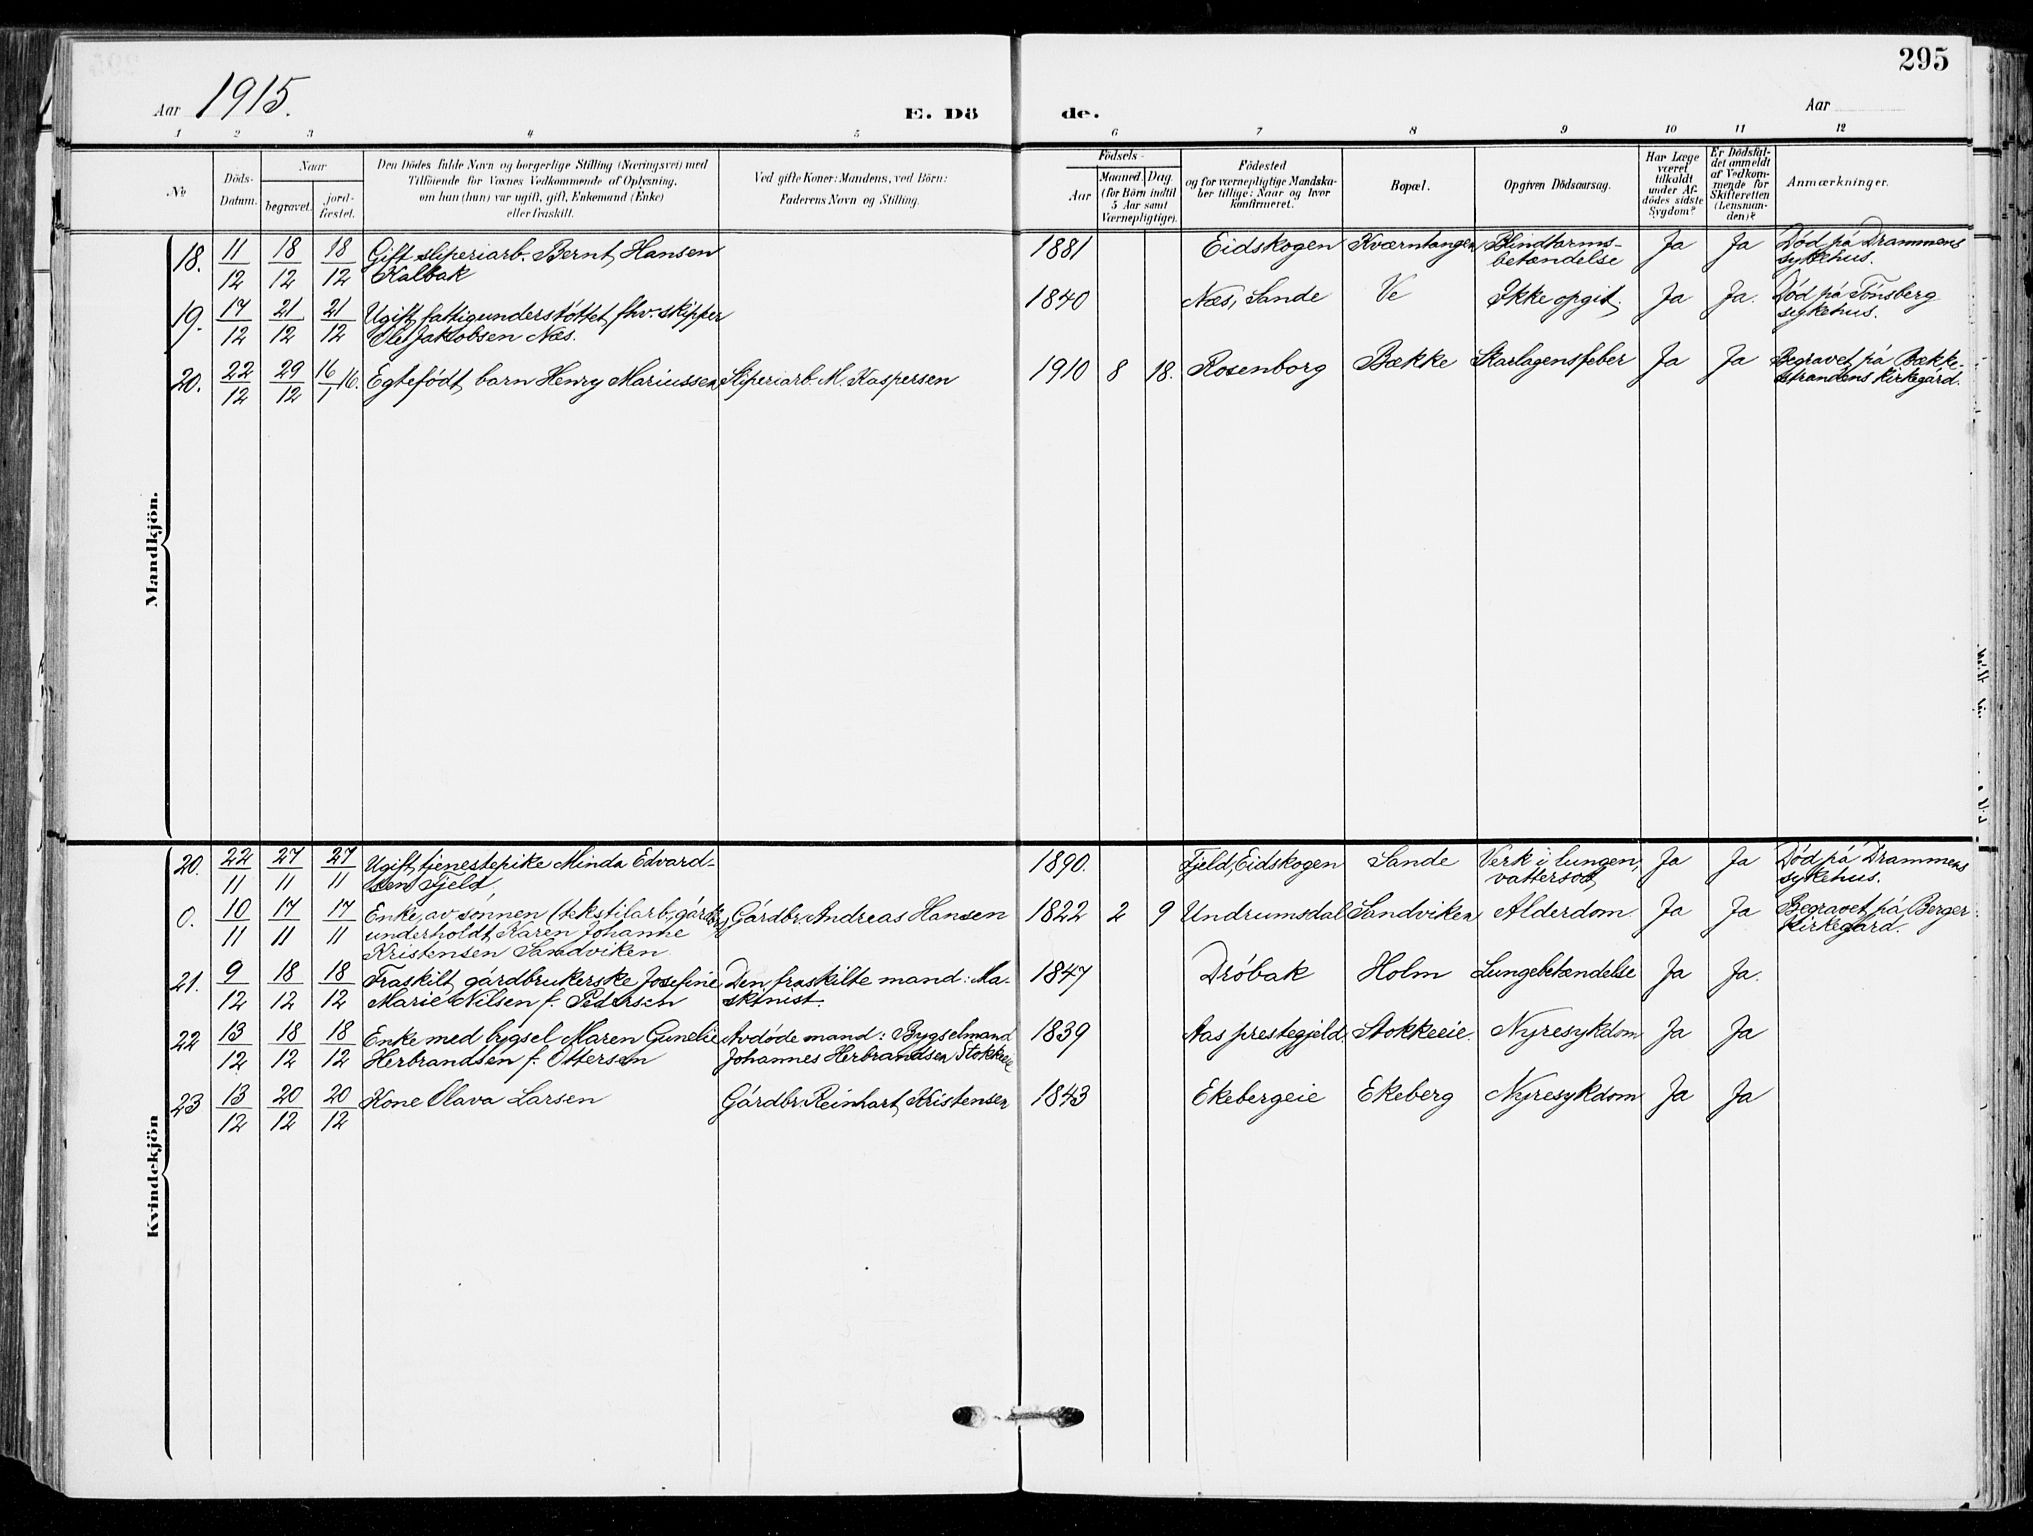 295
Aar 1915. E. Dö de. Aar
1 2 3 4 5 6 7 8 9 10 11 12
№
Döds-
Datum.
Naar
begravet.
jord-
fæstet.
Den Dödes fulde Navn og borgerlige Stilling (Næringsvei) med
Tilföiende for Voxnes Vedkommende af Oplysning,
om han (hun) var ugift, gift, Enkemand (Enke)
eller fraskilt.
Ved gifte Koner: Mandens, ved Börn:
Faderens Navn og Stilling.
Födsels-
Aar
Maaned. Dag.
(for Börn indtil
5 Aar samt
Værnepligtige).
Födested
og for værnepligtige Mandska-
ber tillige: Naar og hvor
konfirmeret.
Bopæl.
Opgiven Dödsaarsag.
Har Læge
været
tilkaldt
under Af-
dödes sidste
Sygdom?
Er Dödsfal-
det anmeldt
af Vedkom-
mende for
Skifteretten
(Lensman-
den)?
Anmærkninger.
Mandkjön.
18. 11/12 18/12 18/12 Gift sliperiarb. Bernt Hansen 1881 Eidskogen Kværntangen Blindtarms- Ja Ja Død på Drammens
Kalbak betændelse sykehus.
19. 17/12 21/12 21/12 Ugift fattigunderstøttet fhv. skipper 1840 Næs, Sande Ve Ikke opgit. Ja Ja. Død på Tönsberg
Ole Jakobsen Næs. sykehus.
20. 22/12 29/12 16/1 16. Egtefødt barn Henry Mariussen Sliperiarb. M. Kaspersen 1910 8 18. Rosenborg Bække Skarlagensfeber Ja Ja Begravet på Bække-
strandens kirkegård.
Kvindekjön
20. 22/11 27/11 27/11 Ugift tjenestepike Minda Edvard- 1890. Fjeld, Eidskogen Sande Verk i lungen, Ja Ja Død på Drammens
sen Fjeld vattersot sykehus.
0. 10/11 17/11 17/11 Enke, av sønnen (tekstilarb., gårdbr.) Gårdbr. Andreas Hansen 1822 2 9 Undrumsdal Sandviken Alderdom. Ja Ja Begravet på Berger
underholdt Karen Johanne kirkegård.
Kristensen Sandviken.
21. 9/12 18/12 18/12 Fraskilt gårdbrukerske Josefine Den fraskilte mand: Ma- 1847 Dröbak Holm Lungebetændelse Ja Ja.
Marie Nilsen f. Pedersen skinist.
22 13/12 18/12 18/12 Enke med bygsel Maren Gunelie Avdøde mand: Bygselmand 1839 Aas prestegjeld. Stokkeeie. Nyresykdom Ja Ja
Herbrandsen f. Ottersen Johannes Herbrandsen Stokkeeie
23 13/12 20/12 20/12 Kone Olava Larsen Gårdbr. Reinhart Kristensen 1843 Ekebergeie Ekeberg Nyresykdom Ja Ja